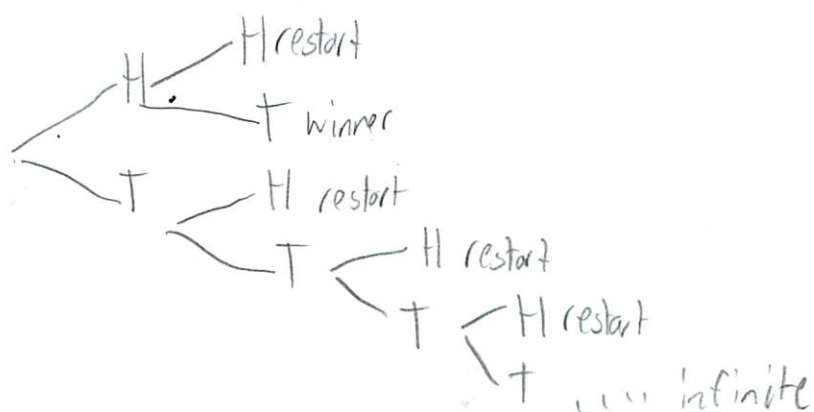 H restart
H
T winner
T
H restart
T
H restart
T
H restart
T .... infinite